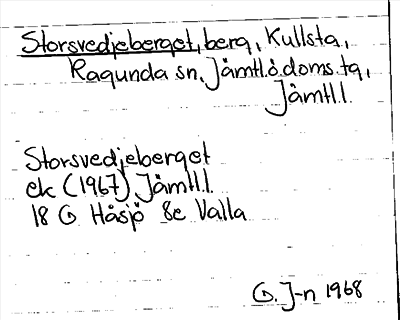 Storsvedjeberget, berg, Kullsta,
Ragunda sn, Jämtl.ö.doms.tg,
Jämtl.l.
Storsvedjeberget
ek (1967) Jämtl.l.
18 G Håsjö 8c Valla
G. J-n 1968